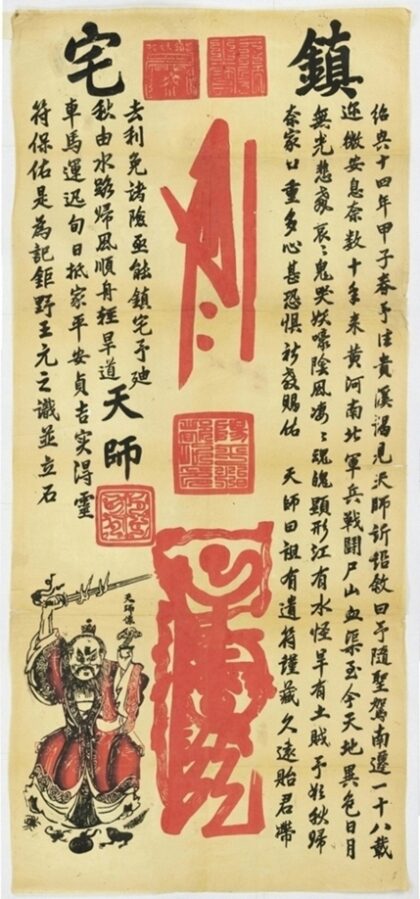 鎮宅
紹興十四年甲子春予往貴溪謁見天師訴敘曰予隨聖駕南遷一十八載
迩徼安息奈数十年来黄河南北軍兵戰鬪尸山血渠至今天地異色日月
無光悲聲哀〻鬼哭妖嚎陰風凄〻魂魄顯形江有水怪旱有土贼予始秋歸
奈家口重多心甚恐惧祈教賜佑 天師曰祖有遺符謹藏久遠貽君帶
去利免諸險亟能鎮宅予廸
秋由水路歸風順舟輕旱道
車馬運迟旬日抵家平安貞吉实得靈
符保佑是為記鉅野王元之識並立石
天師
陽平治都功印
天師像